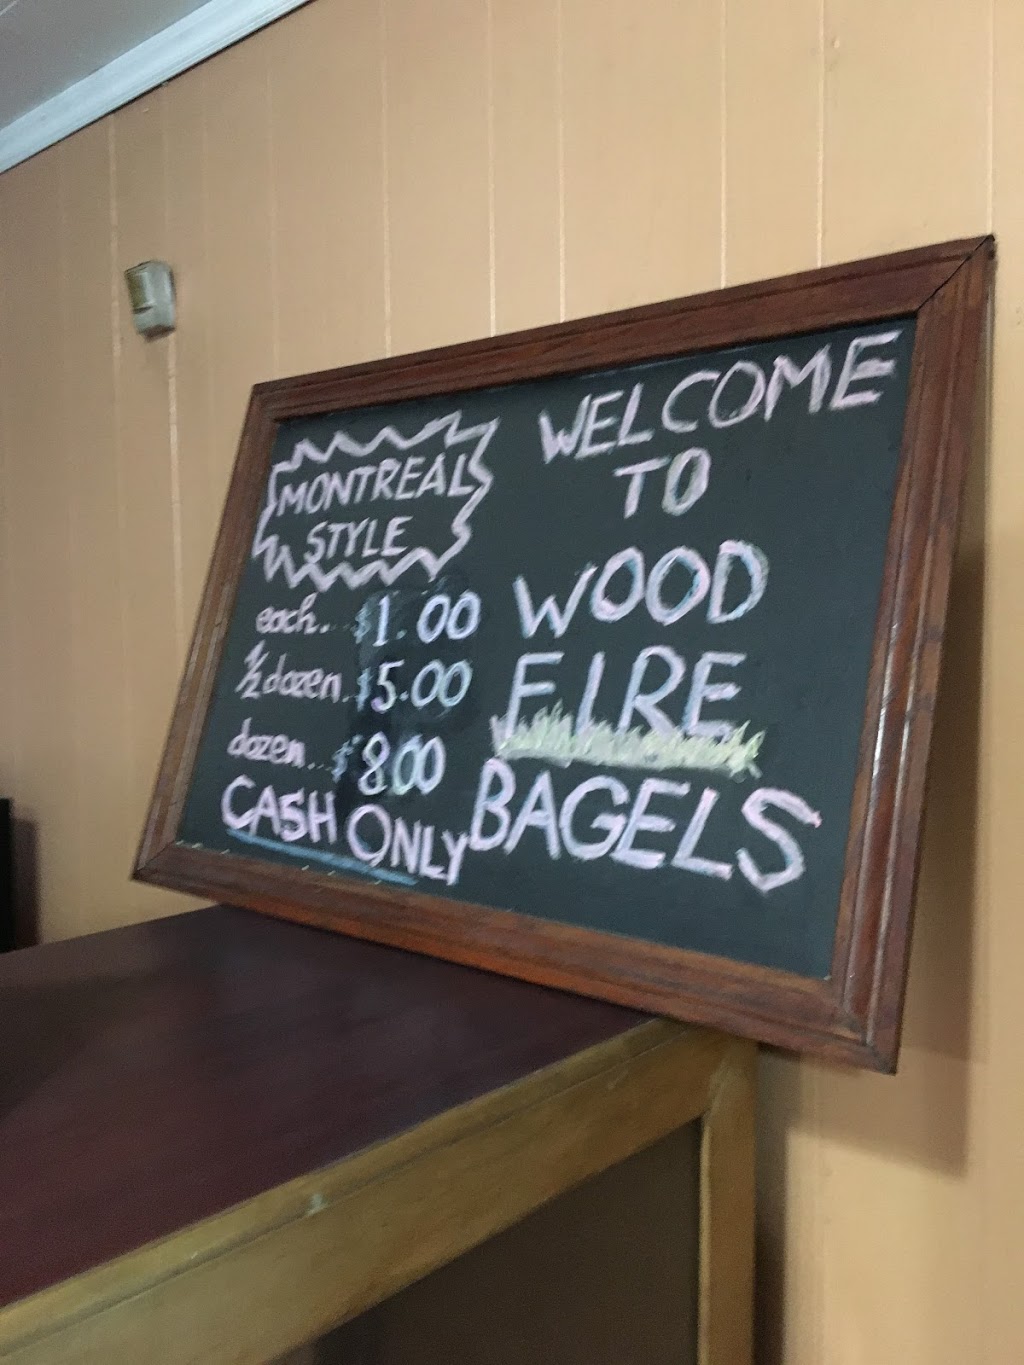 MONTREAL
STYLE
each...$1.00
1/2 dozen.$5.00
dozen...$8.00
CASH ONLY
WELCOME
TO
WOOD
FIRE
BAGELS